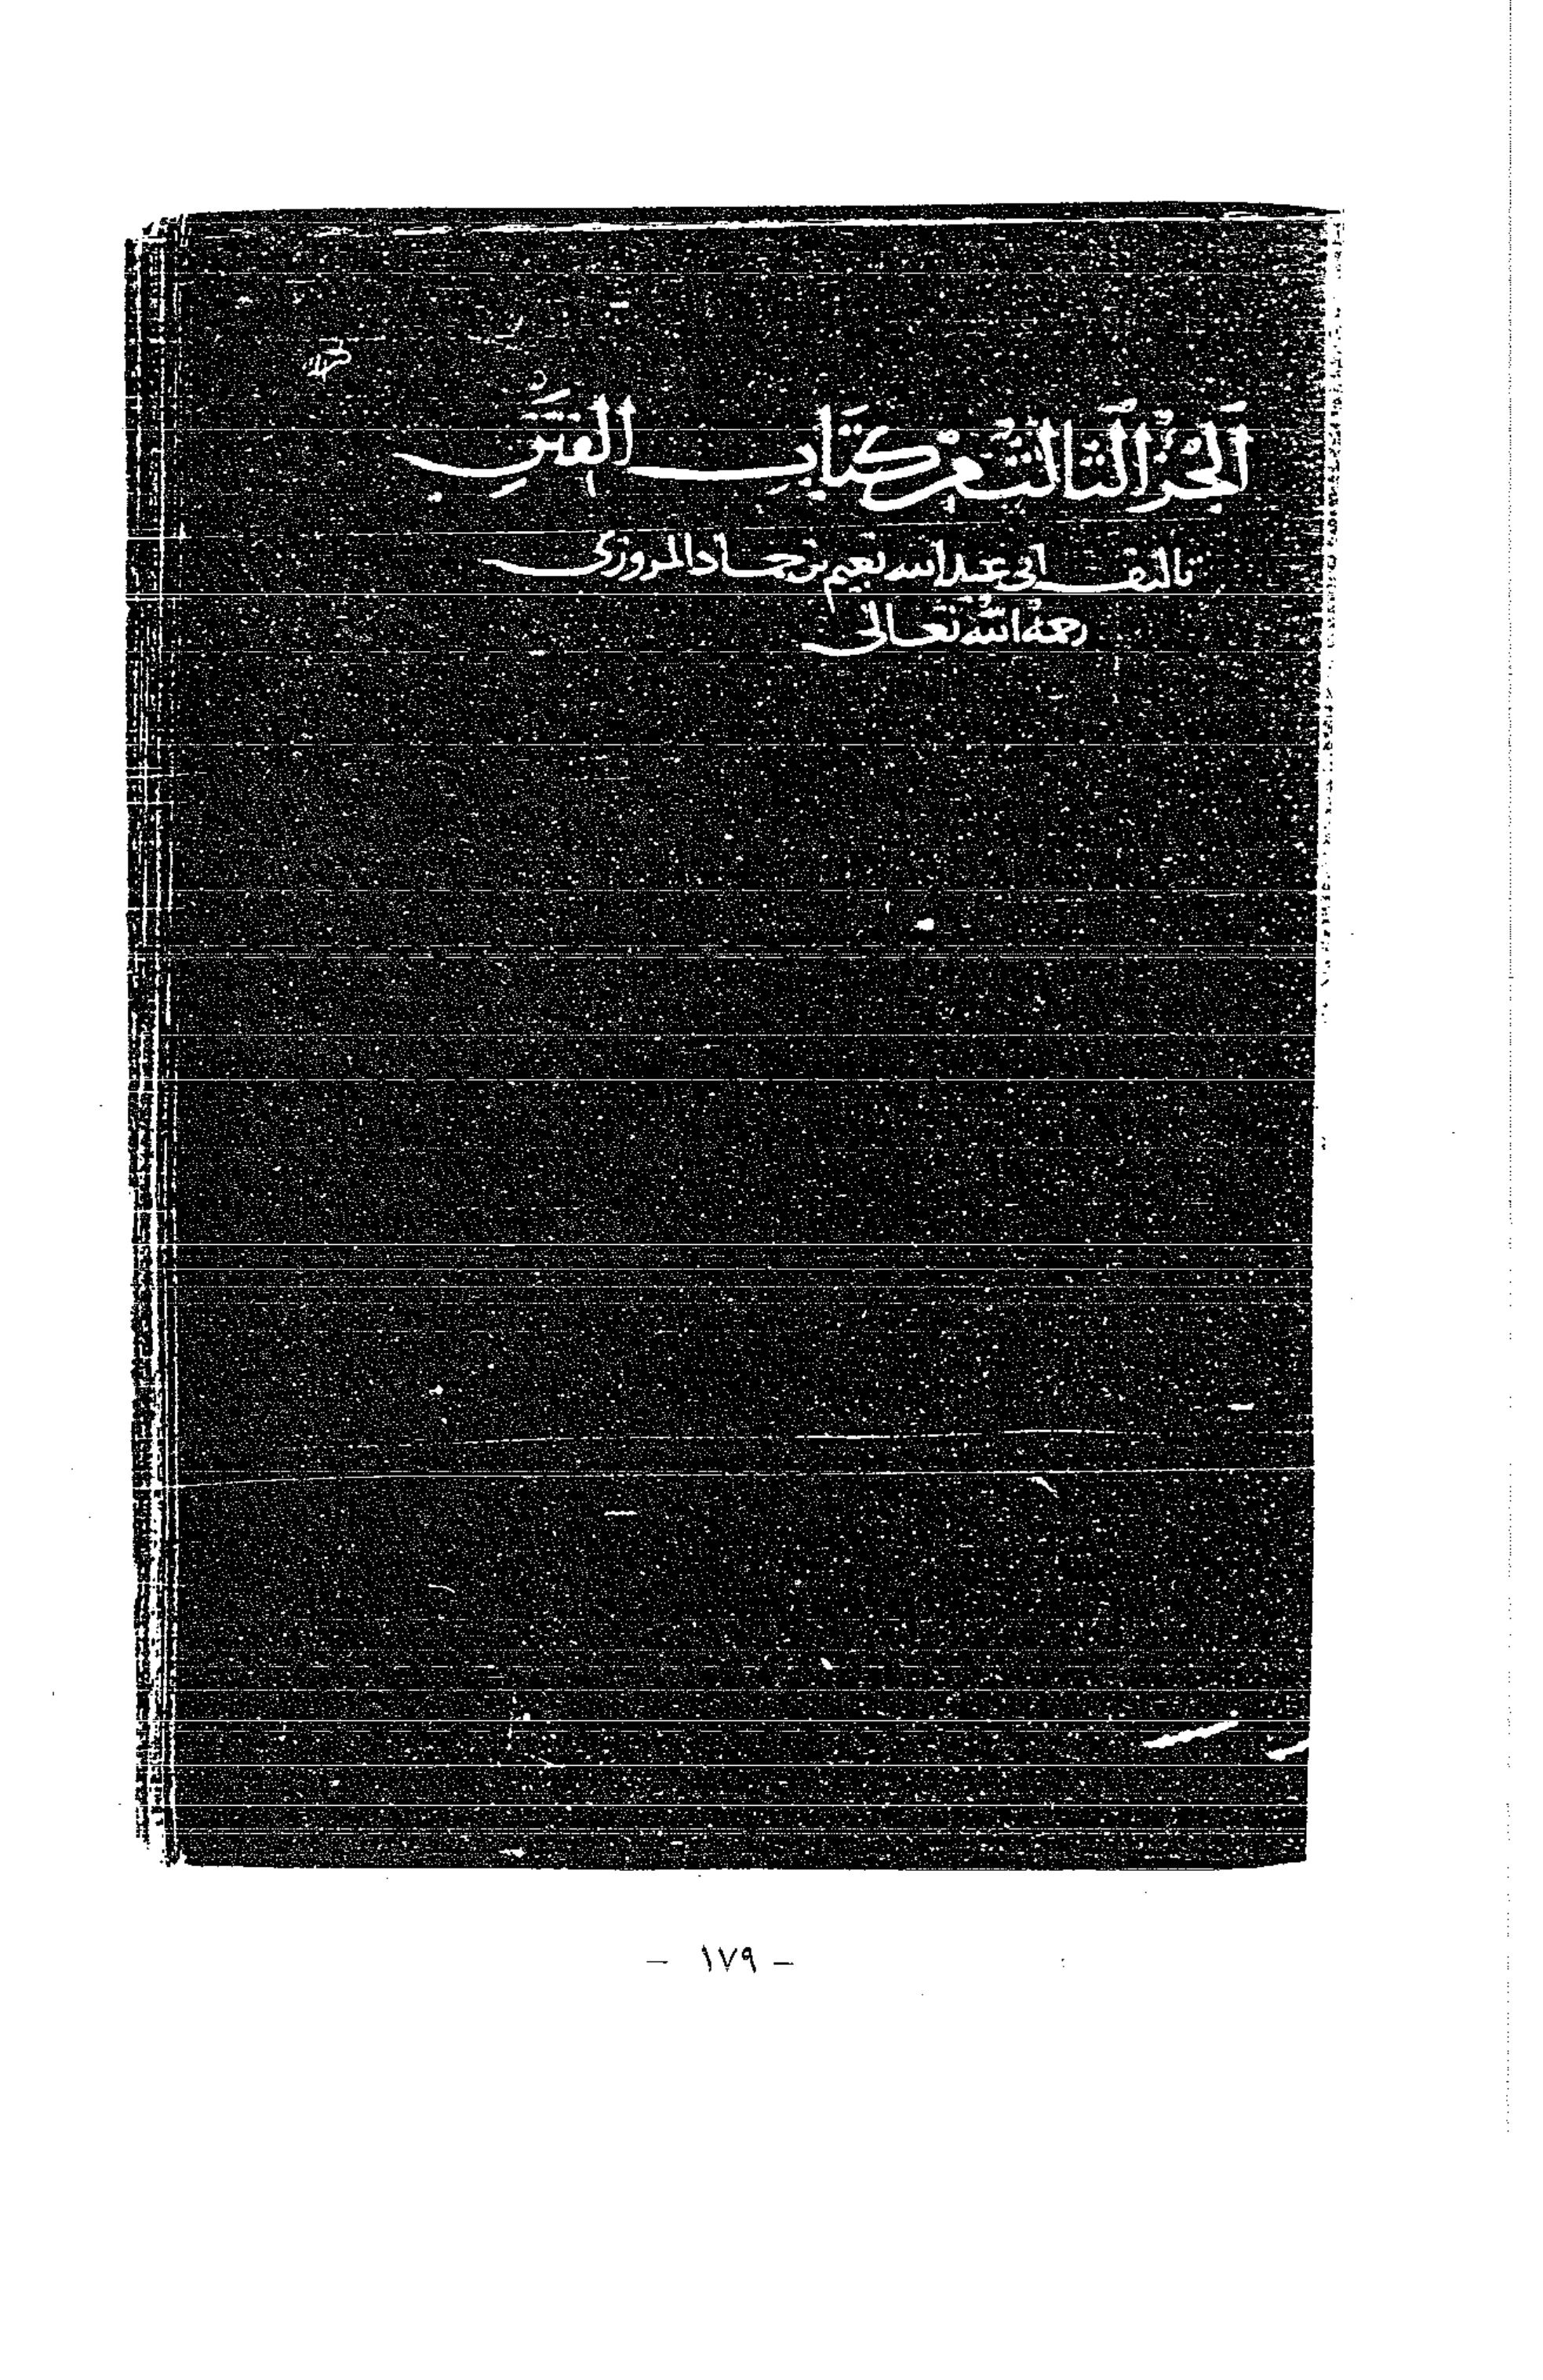 الجزُ الثالثُ من كتاب الفتن
تاليف ابي عبد الله نعيم بن حماد المروزي
رحمهُ اللهُ تعالى
– ١٧٩ –